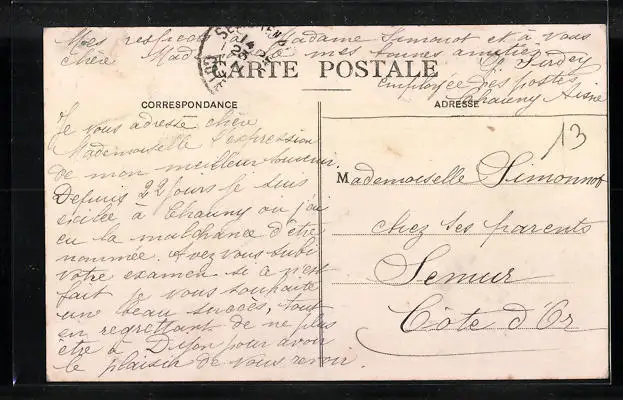 Mes respects à Madame Simonot et à vous
chère Mad mes tonnes amitiés
employée des postes
Chauny Aisne
CARTE POSTALE
CORRESPONDANCE
ADRESSE
13
Je vous adresse chère
Mademoiselle l'expression
de mon meilleur souvenir.
Depuis 22 jours je suis
exilée à Chauny où j'ai
eu la malchance d'être
nommée. Avez vous subi
votre examen si à n'est
fait je vous souhaite
un beau succès, tout
en regrettant de ne plus
être à Dijon pour avoir
le plaisir de vous revoir.
Mademoiselle Simonnot
chez ses parents
Semur
Côte d'Or